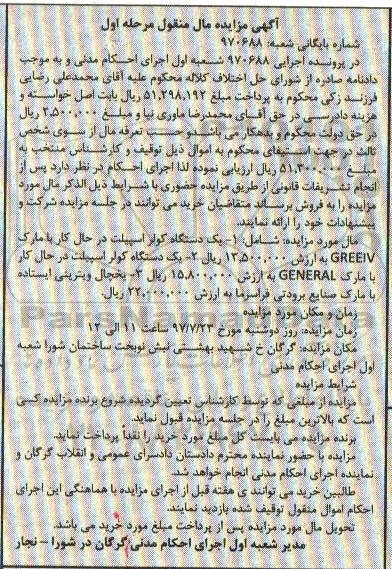 آگهی مزایده مال منقول مرحله اول
شماره بایگانی شعبه: ۹۷۰۶۸۸
در پرونده اجرایی ۹۷۰۶۸۸ شعبه اول اجرای احکام مدنی و به موجب
دادنامه صادره از شورای حل اختلاف کلاله محکوم علیه آقای محمدعلی رضایی
فرزند زکی محکوم به پرداخت مبلغ ۵۱,۲۹۸,۱۹۲ ریال بابت اصل خواسته و
هزینه دادرسی در حق آقای محمدرضا ماوری نیا و مبلغ ۲,۵۰۰,۰۰۰ ریال
در حق دولت محکوم و بدهکار می باشد و حسب تعرفه مال از سوی شخص
ثالث در جهت استیفای محکوم به اموال ذیل توقیف و کارشناس منتخب به
مبلغ ۵۱,۳۰۰,۰۰۰ ریال ارزیابی نموده لذا اجرای احکام در نظر دارد پس از
انجام تشریفات قانونی از طریق مزایده حضوری با شرایط ذیل الذکر مال مورد
مزایده را به فروش برساند متقاضیان خرید می توانند در جلسه مزایده شرکت و
پیشنهادات خود را ارائه نمایند.
مال مورد مزایده: شامل: ۱- یک دستگاه کولر اسپیلت در حال کار با مارک
GREEIV به ارزش ۱۳,۵۰۰,۰۰۰ ریال ۲- یک دستگاه کولر اسپیلت در حال کار
با مارک GENERAL به ارزش ۱۵,۸۰۰,۰۰۰ ریال ۳- یخچال ویترینی ایستاده
با مارک صنایع برودتی فراسرما به ارزش ۲۲,۰۰۰,۰۰۰ ریال.
زمان و مکان مورد مزایده
زمان مزایده: روز دوشنبه مورخ ۹۷/۷/۲۳ ساعت ۱۱ الی ۱۲
مکان مزایده: گرگان خ شهید بهشتی نبش نوبخت ساختمان شورا شعبه
اول اجرای احکام مدنی
شرایط مزایده
مزایده از مبلغی که توسط کارشناس تعیین گردیده شروع برنده مزایده کسی
است که بالاترین مبلغ را در جلسه مزایده قبول نماید.
برنده مزایده می بایست کل مبلغ مورد خرید را نقداً پرداخت نماید.
مزایده با حضور نماینده محترم دادستان دادسرای عمومی و انقلاب گرگان و
نماینده اجرای احکام مدنی انجام خواهد شد.
طالبین خرید می توانند ی هفته قبل از اجرای مزایده با هماهنگی این اجرای
احکام اموال منقول توقیف شده بازدید نمایند.
تحویل مال مورد مزایده پس از پرداخت مبلغ مورد خرید می باشد.
مدیر شعبه اول اجرای احکام مدنی گرگان در شورا – نجار